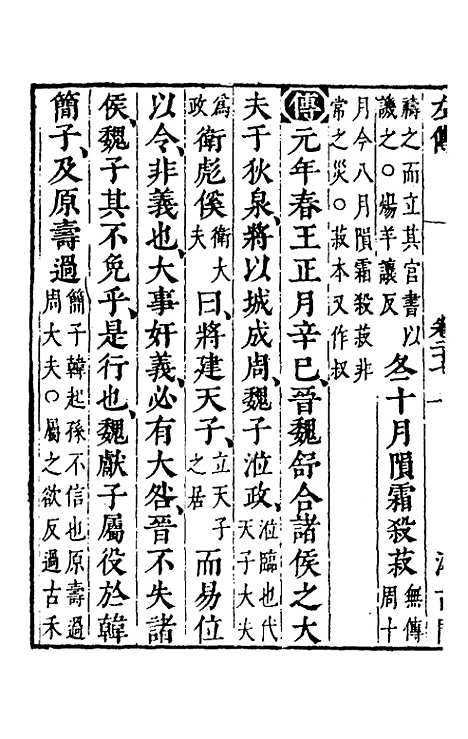 左傳 卷二十七 一
禱之而立其官書以譏之○煬羊讓反冬十月隕霜殺菽無傳周十
月今八月隕霜殺菽非常之災○菽本又作叔
傳元年春王正月辛巳、晉魏舒合諸侯之大
夫于狄泉、將以城成周、魏子涖政、涖臨也代天子大夫
爲政衛彪傒衛大夫曰、將建天子、立天子之居而易位
以令、非義也、大事奸義、必有大咎、晉不失諸
侯、魏子其不免乎、是行也、魏獻子屬役於韓
簡子、及原壽過簡子韓起孫不信也原壽過周大夫○屬之欲反過古禾